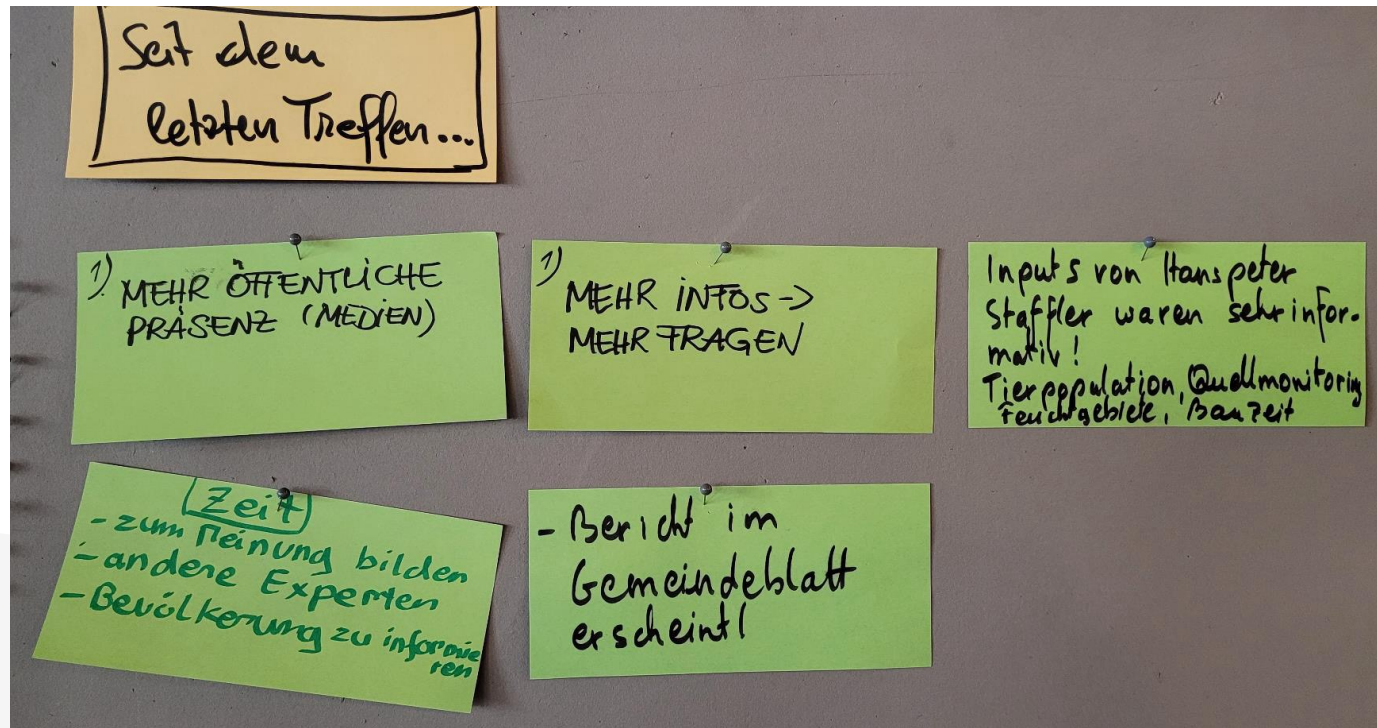 Seit dem
letzten Treffen...
1) MEHR ÖFFENTLICHE
PRÄSENZ (MEDIEN)
1) MEHR INFOS ->
MEHR FRAGEN
Inputs von Hanspeter
Staffler waren sehr infor-
mativ!
Tierpopulation, Quellmonitoring
Feuchtgebiete, Bauzeit
Zeit
- zum Meinung bilden
- andere Experten
- Bevölkerung zu informie
ren
- Bericht im
Gemeindeblatt
erscheint!